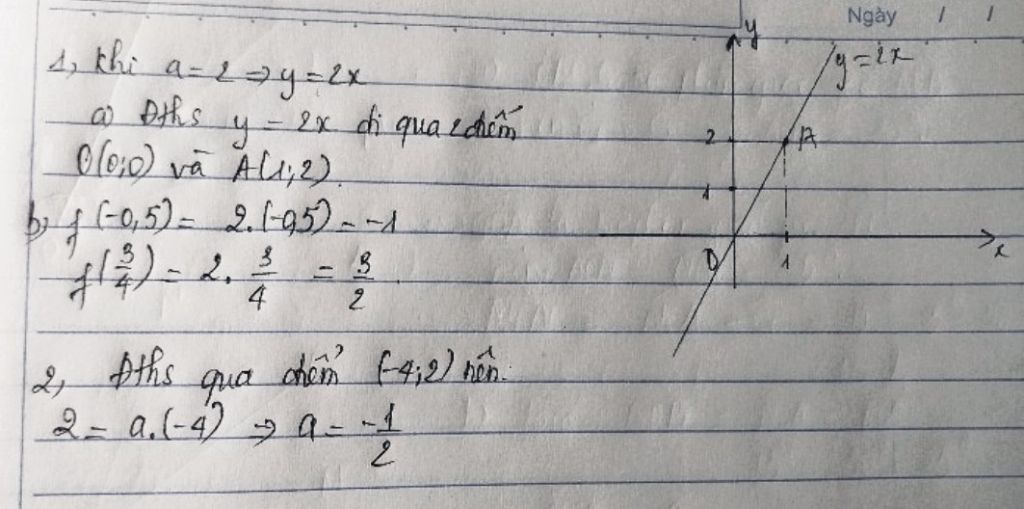 Ngày / /
1, Khi a = 2 ⇒ y = 2x
a) Đths y = 2x đi qua 2 điểm
O(0;0) và A(1;2).
b, f(-0,5) = 2.(-0,5) = -1
f(3/4) = 2. 3/4 = 3/2.
2, Đths qua điểm (-4;2) nên.
2 = a.(-4) ⇒ a = -1/2
y
y = 2x
2
A
1
O
1
x